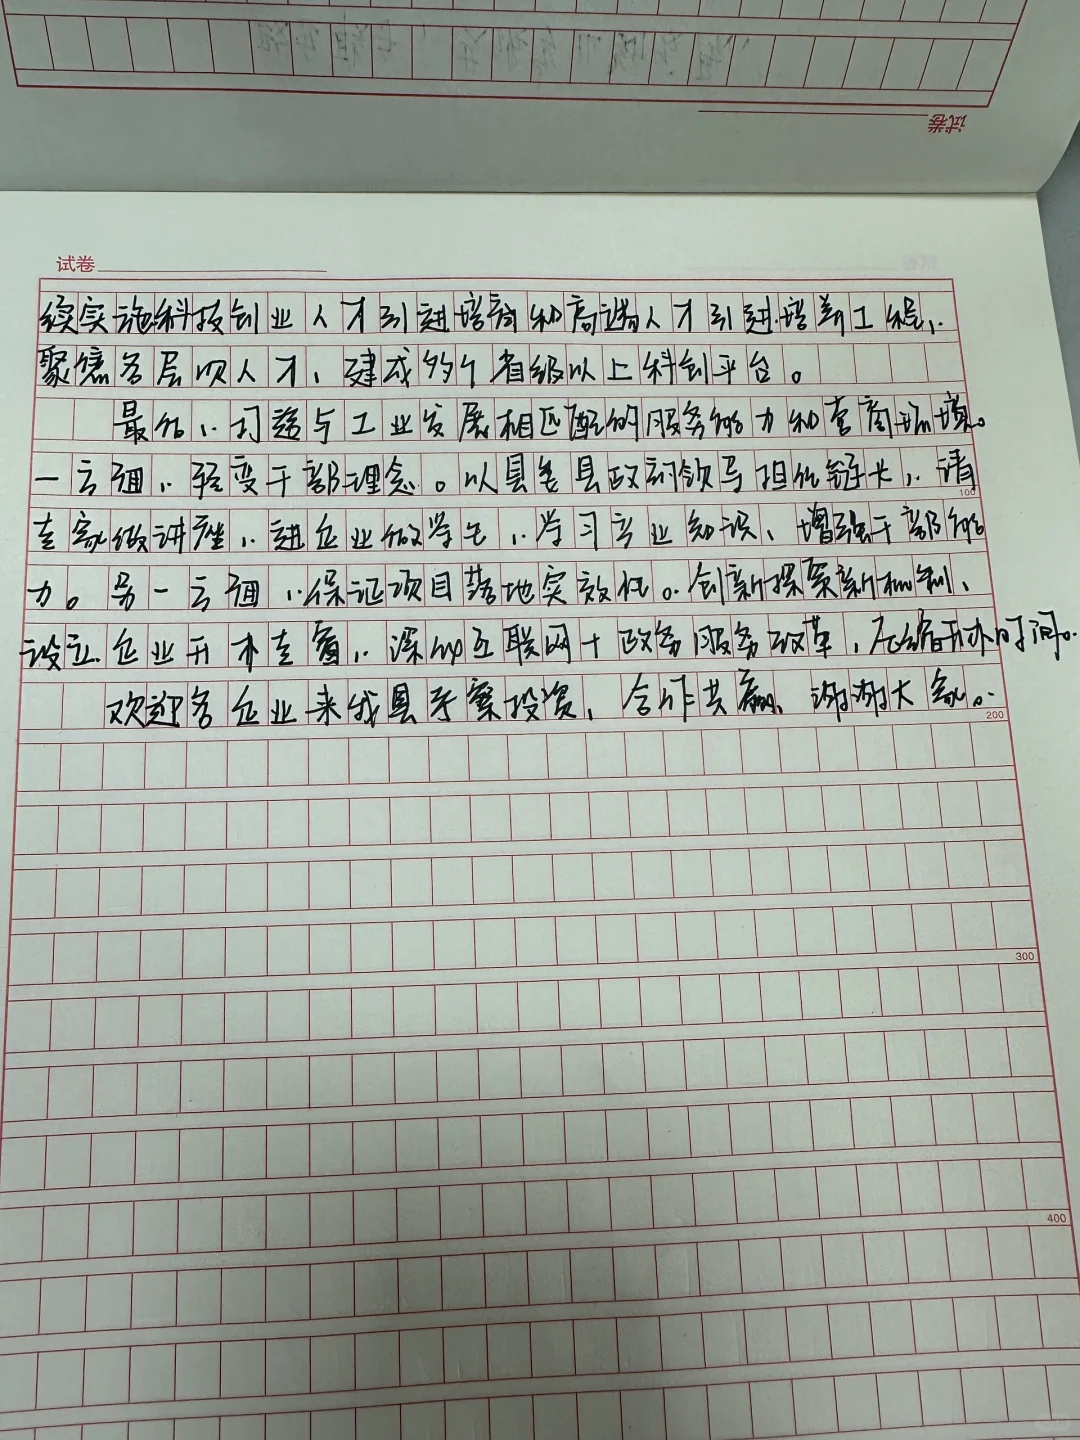 试卷
试卷
续实施科技创业人才引进培育和高端人才引进培养工程,
聚焦各层次人才、建成多个省级以上科创平台。
最后,打造与工业发展相匹配的服务能力和营商环境。
一方面,转变干部理念。以县委县政府领导担任链长,请
专家做讲座,进企业做学生,学习产业知识、增强干部能
力。另一方面,保证项目落地实效性。创新探索新机制、
设立企业开办专窗,深化互联网+政务服务改革,压缩开办时间。
100
欢迎各企业来我县考察投资、合作共赢、谢谢大家。
200
300
400